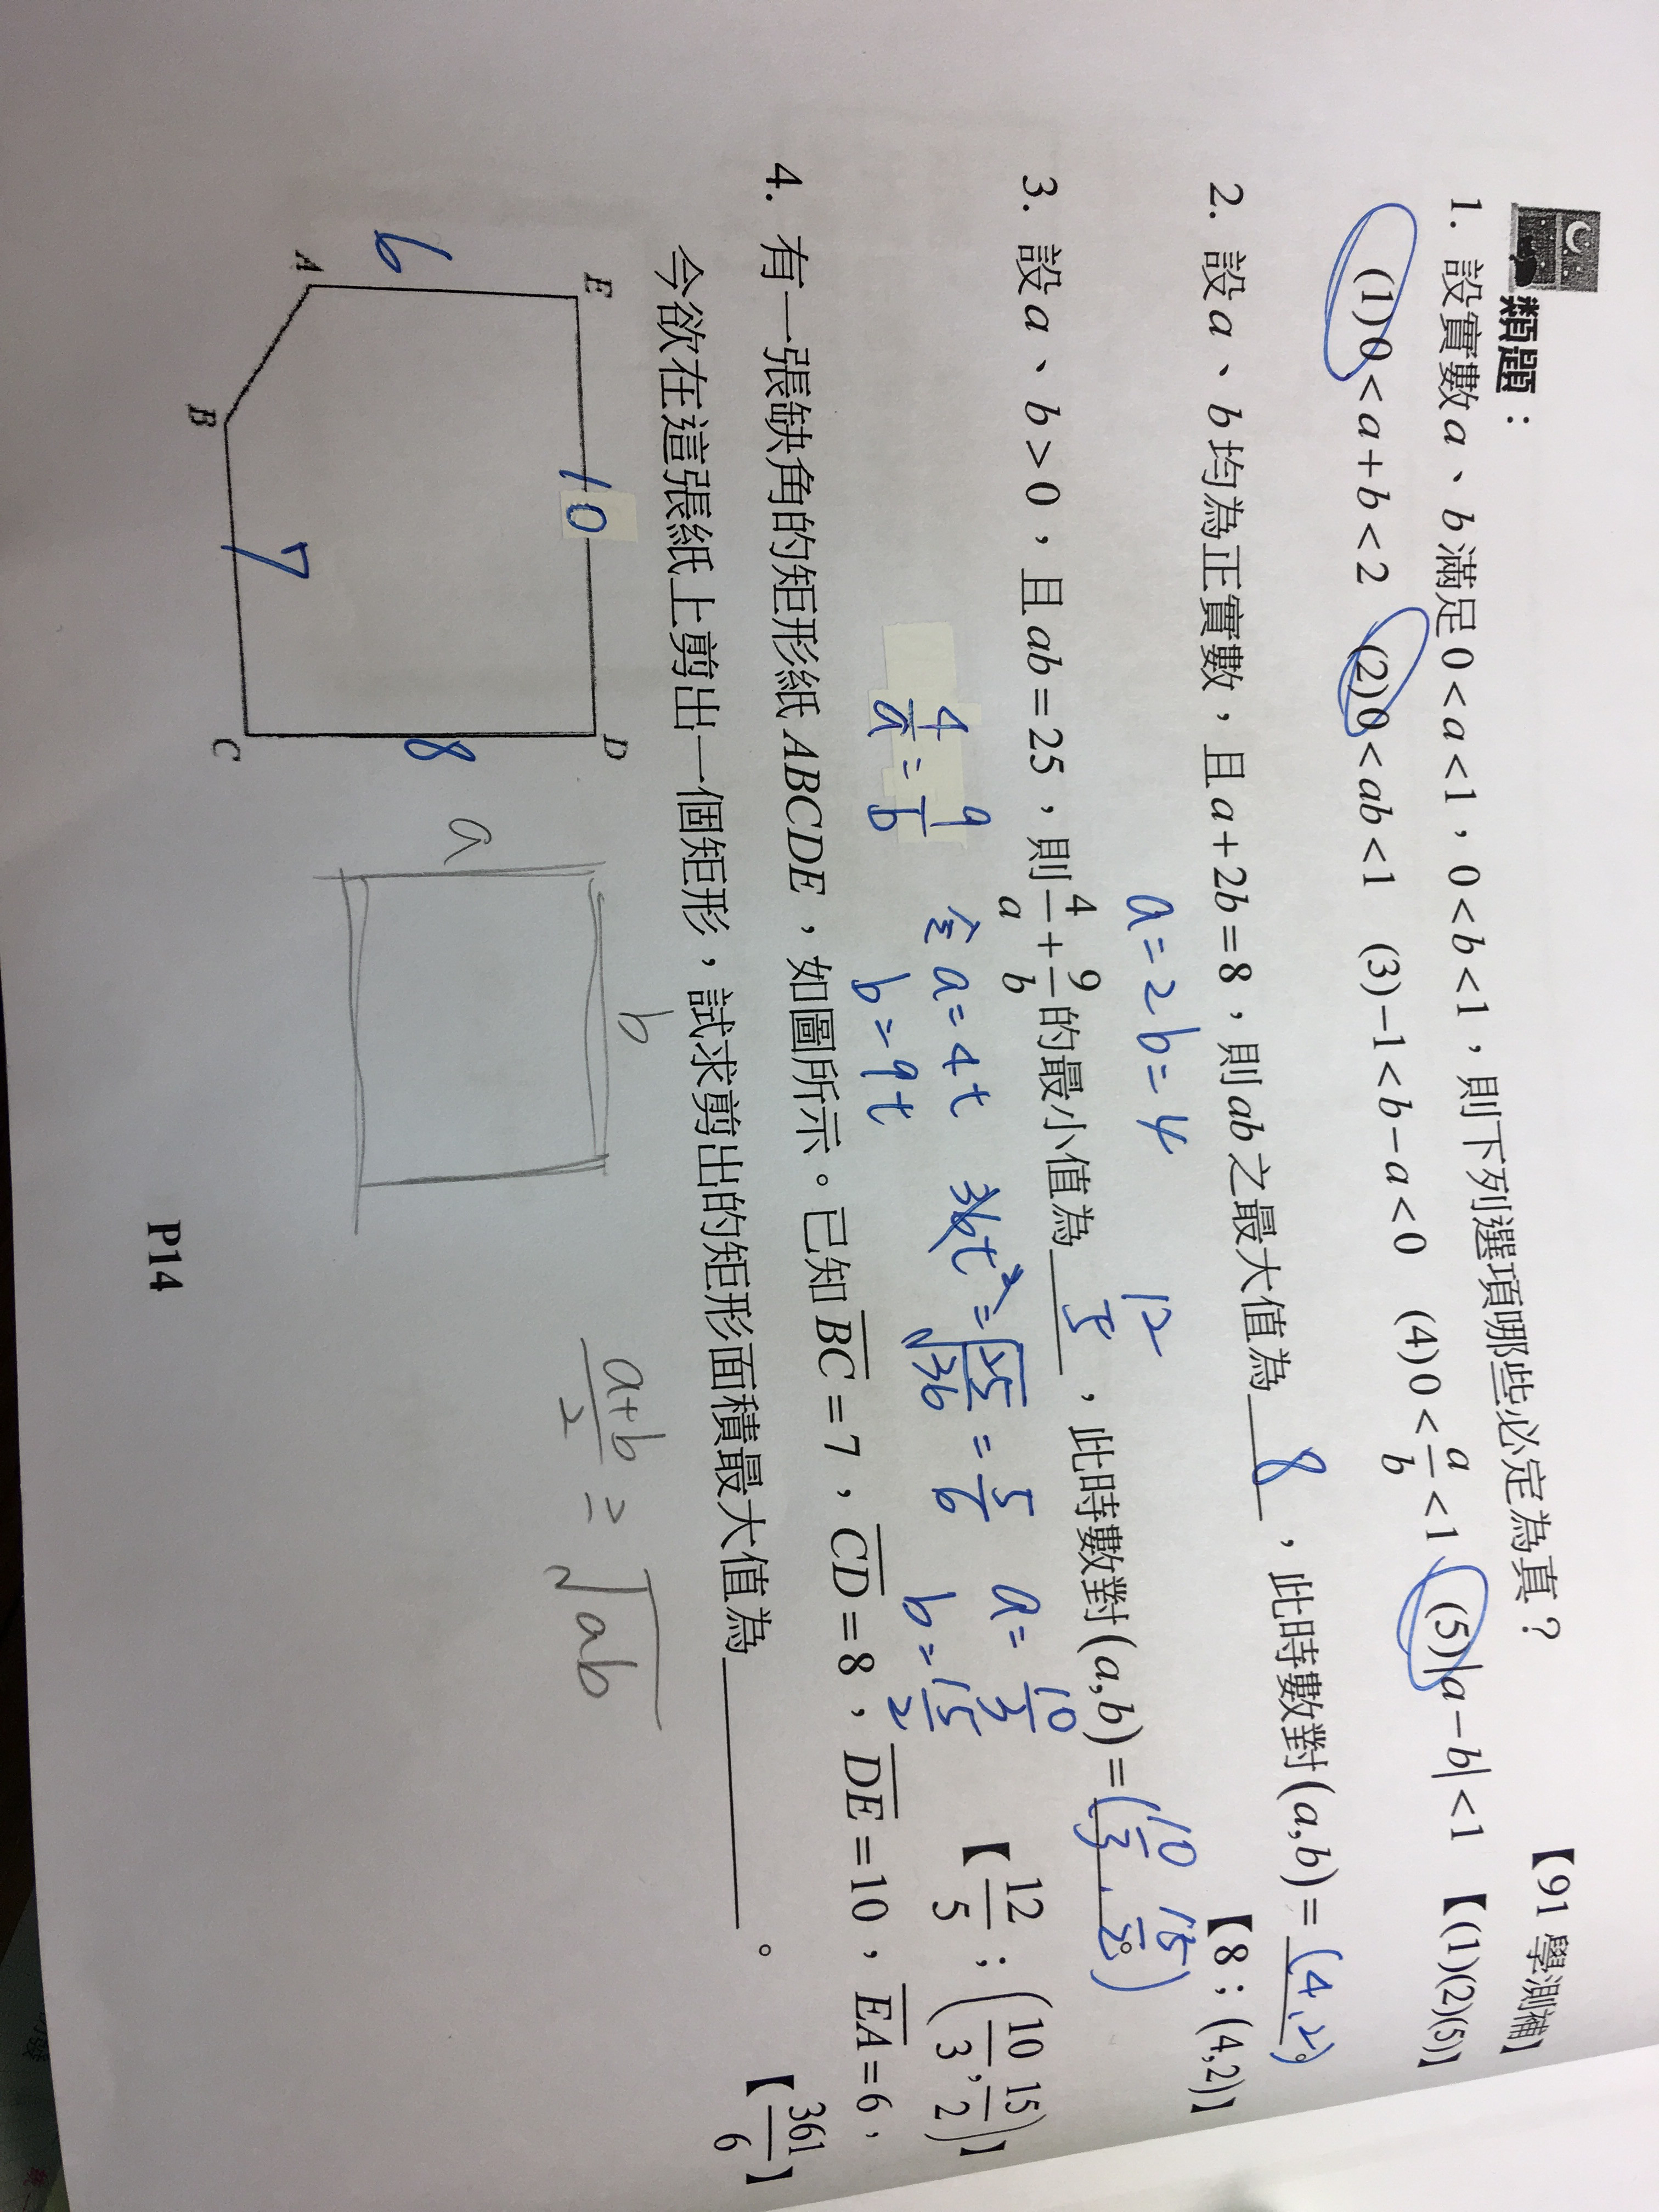 類題：
1. 設實數a、b滿足0<a<1，0<b<1，則下列選項哪些必定為真？ 【91學測補】
(1)0<a+b<2 (2)0<ab<1 (3)-1<b-a<0 (4)0<a/b<1 (5)|a-b|<1 【(1)(2)(5)】
a=2b=4
2. 設a、b均為正實數，且a+2b=8，則ab之最大值為 8 ，此時數對(a,b)=(4,2)。
【8；(4,2)】
12/5
3. 設a、b>0，且ab=25，則4/a+9/b的最小值為____，此時數對(a,b)=(10/3, 15/2)。
【12/5；(10/3, 15/2)】
4/a=9/b
令a=4t
b=9t
36t²=√25/√36=5/6
a=10/3
b=15/2
4. 有一張缺角的矩形紙ABCDE，如圖所示。已知BC=7，CD=8，DE=10，EA=6，
今欲在這張紙上剪出一個矩形，試求剪出的矩形面積最大值為________。 【361/6】
E
10
D
6
8
A
B
7
C
b
a
a+b/2=√ab
P14